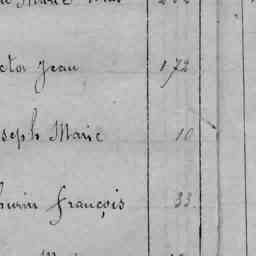 Marie
ctor Jean 172
seph Marie 10
hurin François 33